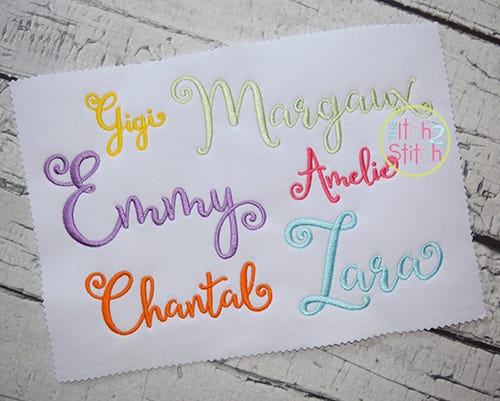 Gigi
Margaux
the Itch 2
Stitch
Amelie
Emmy
Zara
Chantal